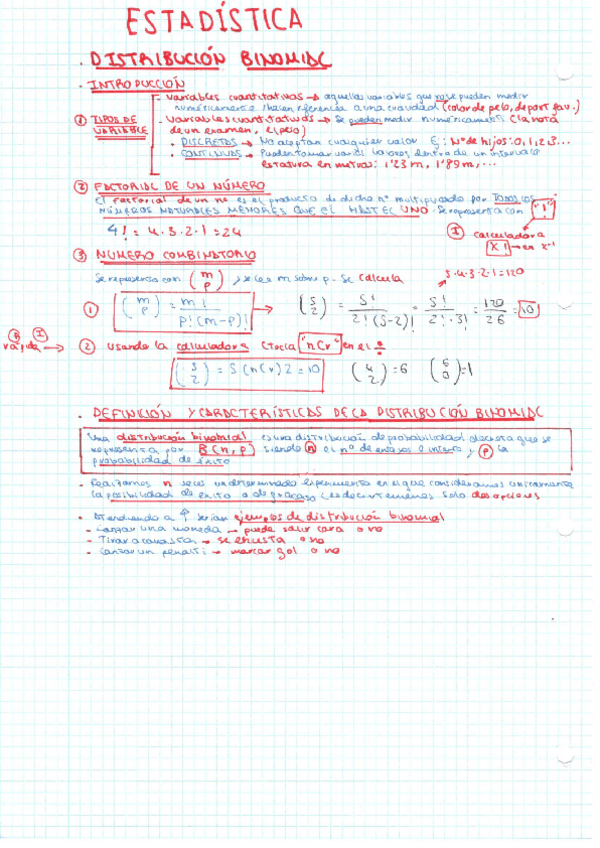 ESTADÍSTICA
. DISTRIBUCIÓN BINOMIAL
. INTRODUCCIÓN
① TIPOS DE VARIABLE
- Variables cuantitativas → aquellas variables que no se pueden medir
numéricamente (hacen referencia a una cualidad (color de pelo, deport fav.)
- Variables cuantitativas → Se pueden medir numéricament (la nota
de un examen, el peso)
• DISCRETAS → No aceptan cualquier valor Ej: Nº de hijos: 0, 1, 2, 3...
• CONTINUAS → Pueden tomar varios valores dentro de un intervalo
estatura en metros: 1'23 m, 1'89 m, ...
② FACTORIAL DE UN NÚMERO
El factorial de un nº es el producto de dicho nº multiplicado por TODOS LOS
NÚMEROS NATURALES MENORES QUE ÉL HASTE EL UNO. Se representa con "!"
4! = 4·3·2·1 = 24
Ⓘ calculadora
X! → en x⁻¹
③ NUMERO COMBINATORIO
Se representa con (m p) y se lee m sobre p. Se calcula
5·4·3·2·1=120
① (m p) = m! / p!(m-p)! → (5 2) = 5! / 2!(5-2)! = 5! / 2!·3! = 120 / 26 = 10
rápida → ② usando la calculadora (tecla "nCr") en el ÷
(5 2) = 5 (nCr) 2 = 10 (4 2) = 6 (6 0) = 1
. DEFINICIÓN Y CARACTERÍSTICAS DE LA DISTRIBUCIÓN BINOMIAL
Una distribución binomial es una distribución de probabilidad discreta que se
representa por B(n, p) siendo n el nº de ensayos o intento y p la
probabilidad de éxito
. Realizamos n veces un determinado experimento en el que consideramos unicamente
la posibilidad de éxito o de fracaso (es decir tenemos solo dos opciones
. Atendiendo a ↑ serían ejemplos de distribución binomial
- Lanzar una moneda → puede salir cara o no
- Tirar a canasta → se encesta o no
- Lanzar un penalti → marcar gol o no